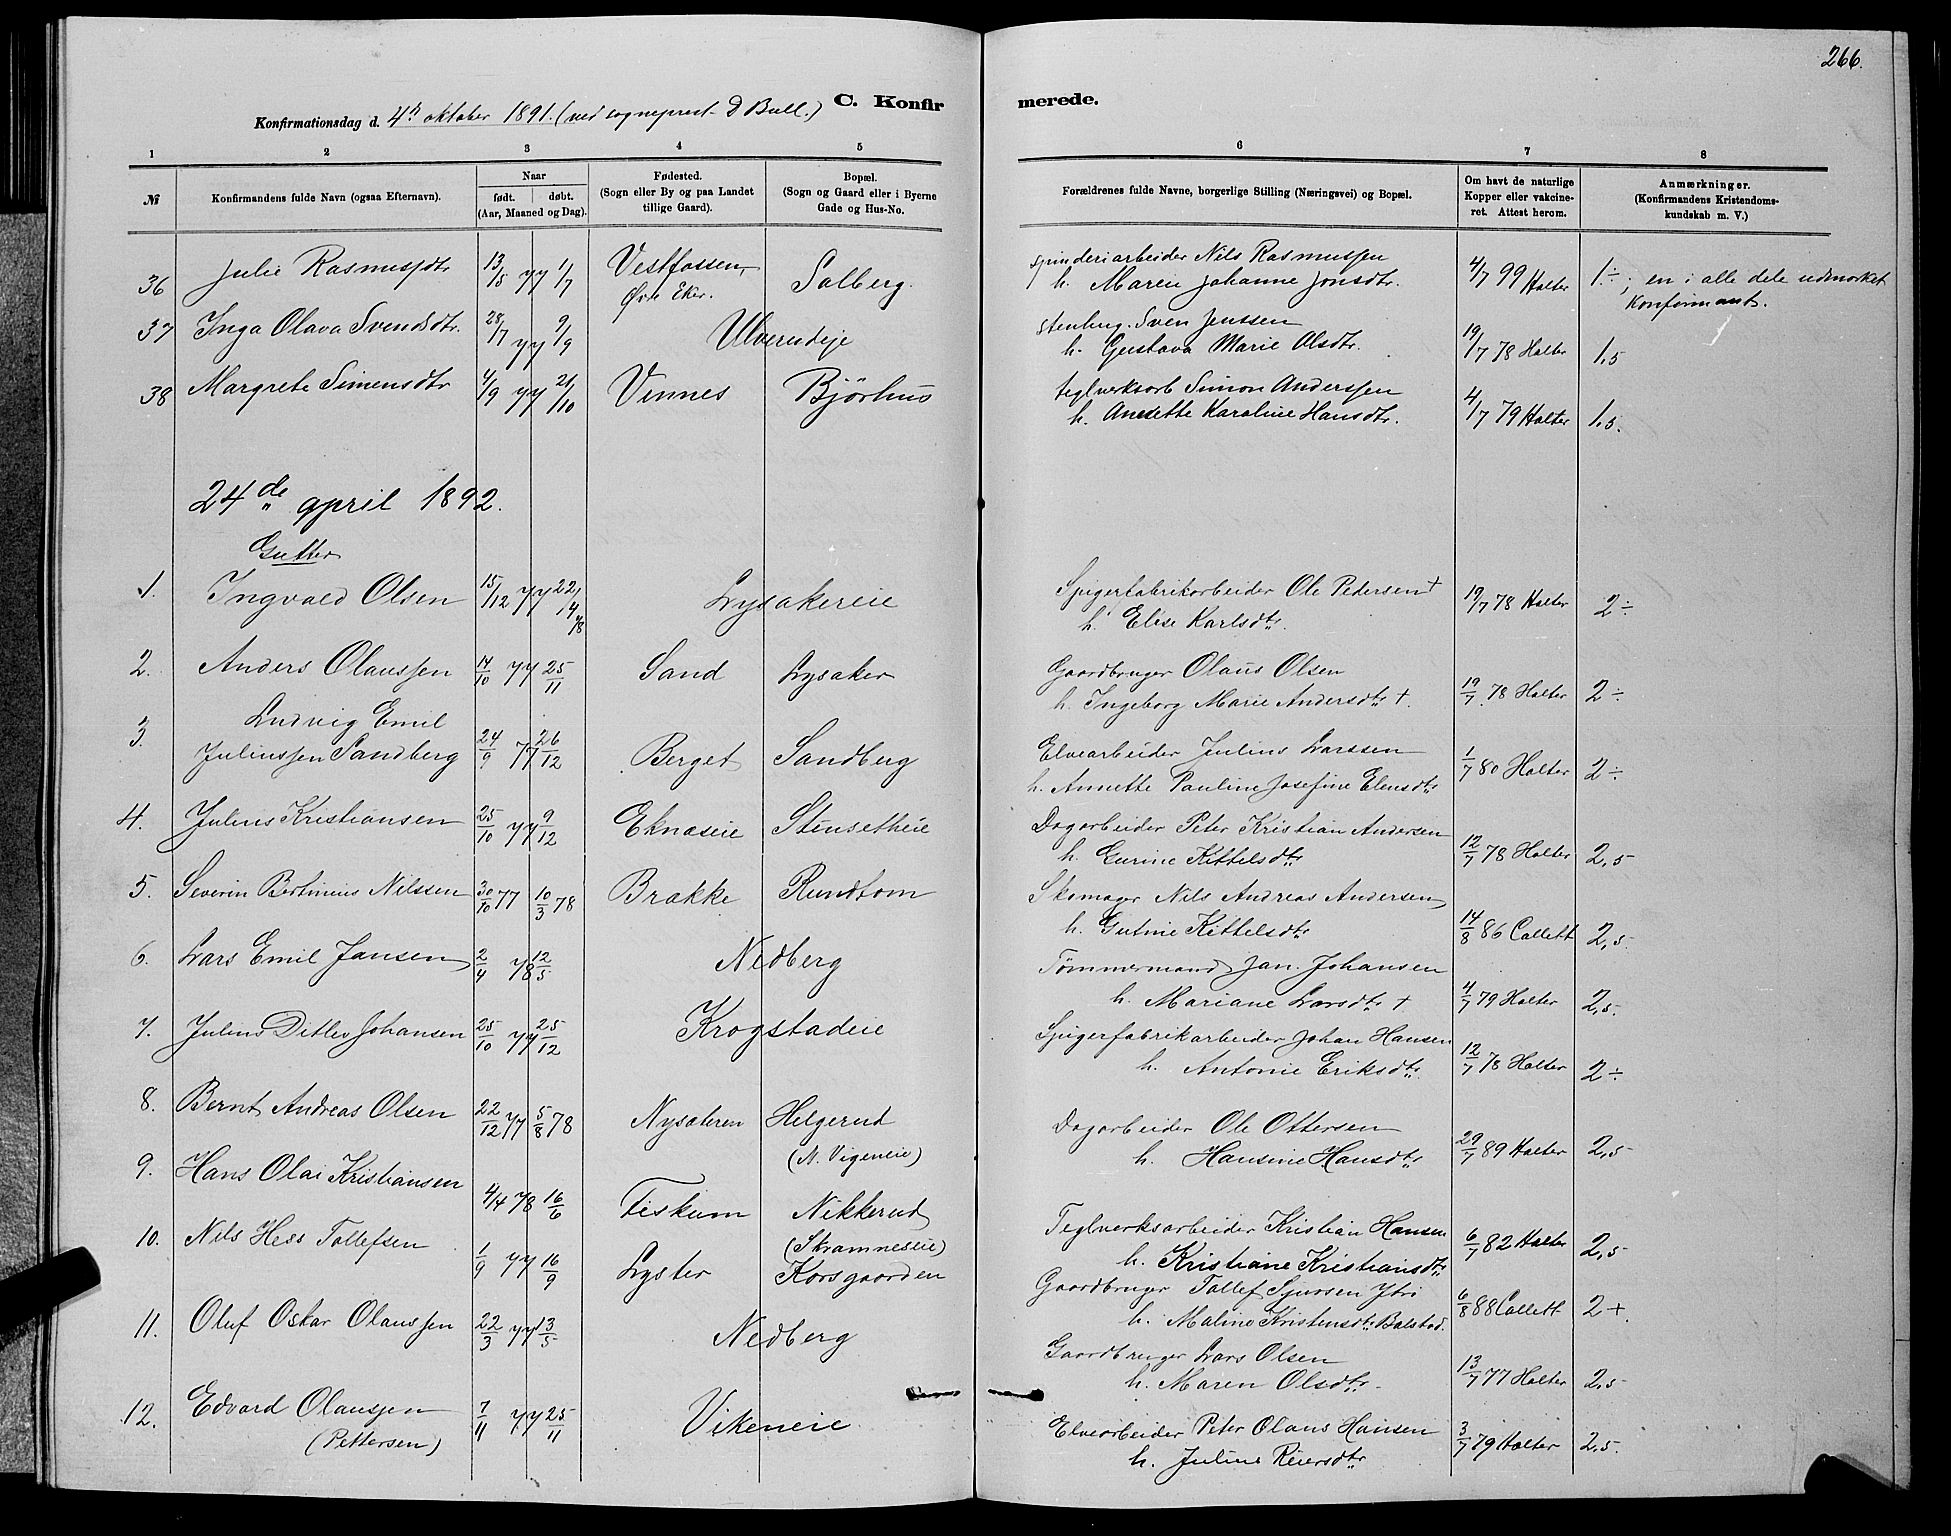 266.
Konfirmationsdag d. 4de oktober 1891. (ved sogneprest D Bull.)
C. Konfirmerede.
1 2 3 4 5 6 7 8
№
Konfirmandens fulde Navn (ogsaa Efternavn).
Naar
født. døbt.
(Aar, Maaned og Dag).
Fødested.
(Sogn eller By og paa Landet
tillige Gaard).
Bopæl.
(Sogn og Gaard eller i Byerne
Gade og Hus-No.
Forældrenes fulde Navne, borgerlige Stilling (Næringsvei) og Bopæl.
Om havt de naturlige
Kopper eller vakcine-
ret. Attest herom.
Anmærkninger.
(Konfirmandens Kristendoms-
kundskab m. V.)
36 Julie Rasmusdtr 13/5 77 1/7 Vestfossen, Øvre Eker. Solberg.
spinderiarbeider Nils Rasmussen
h. Maren Johanne Jonsdtr. 4/7 99 Halter 1÷; en i alle dele udmærket
Konfirmant.
37 Inga Olava Svendsdtr. 28/7 77 9/9 Ulverudeje
stenhug. Sven Jenssen
h. Gustava Marie Olsdtr. 19/7 78 Halter 1,5
38 Margrete Simensdtr 4/9 77 21/10 Vinnes Bjørhus
teglverksarb Simon Anderssen
h. Annette Karoline Hansdtr. 4/7 79 Halter 1,5.
24de april 1892.
Gutter
1. Ingvald Olsen 15/12 77 22/4 78 Lysakereie
Spigerfabrikarbeider Ole Pedersen +
h. Elise Karlsdtr. 19/7 78 Halter 2÷
2. Anders Olaussen 14/10 77 25/11 Sand Lysaker
Gaardbruger Olaus Olsen
h. Ingeborg Marie Andersdtr +. 19/7. 78 Halter 2÷
3. Ludvig Emil
Juliussen Sandberg 24/9 77 26/12 Berget Sandberg
Elvearbeider Julius Larssen
h. Annette Pauline Josefine Elensdtr 1/7 80 Halter 2÷
4. Julius Kristiansen 25/10 77 9/12 Eknæseie Stensetheie
Dagarbeider Peter Kristian Andersen
h. Gurine Kittelsdtr 12/7 78 Halter 2,5
5. Severin Bertinius Nilssen 30/10 77 10/3 78 Brække Rundtom
Skomager Nils Andreas Andersen
h. Gurine Kittelsdtr 14/8 86 Collett 2,5.
6. Lars Emil Jansen 2/4 78 12/5 Nedberg
Tømmermand Jan Johansen
h. Mariane Larsdtr + 4/7 79 Halter 2,5.
7. Julius Ditlev Johansen 25/10 77 25/12 Krogstadeie
Spigerfabrikarbeider Johan Hansen
h. Antonie Eriksdtr. 12/7 78 Halter 2÷
8. Bernt Andreas Olsen 22/12 77 5/8 78 Nysæteren Helgerud
(N. Vegeneie)
Dagarbeider Ole Ottersen
h. Hansine Hansdtr 29/7 89 Halter 2,5
9. Hans Olai Kristiansen 4/4 78 16/6 Fiskum Nikkerud
(Skramneseie)
Teglverksarbeider Kristian Hansen
h. Kristiane Kristiansdtr 6/7 82 Halter 2,5
10. Nils Hess Tollefsen 1/9 77 16/9 Lyster Korsgaarden
Gaardbruger Tollef Sjursen Ytri
h. Maline Kristensdtr Bolstad. 6/8 88 Collett 2+.
11. Oluf Oskar Olaussen 22/3 77 13/5 Nedberg
Gaardbruger Lars Olsen
h. Maren Olsdtr. 13/7 77 Halter 2,5
12. Edvard Olaussen
(Pettersen) 7/11 77 25/11 Vikeneie
Elvearbeider Peter Olaus Hansen
h. Juline Reiersdtr 3/7 79 Halter 2,5.